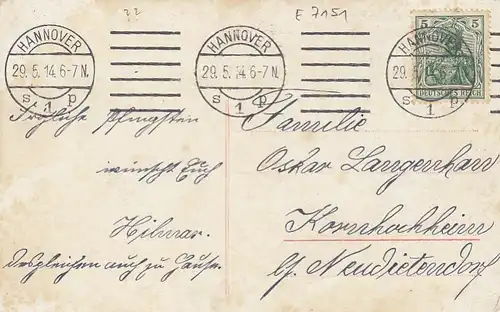 22
E 7151
HANNOVER
29.5.14.6-7N.
s 1 p
HANNOVER
29.5.14.6-7N.
s 1 p
HANNOVER
29.5.14.6-7N.
s 1 p
5 5
DEUTSCHES REICH
Fröhliche Pfingsten
wünscht Euch
Hilmar.
Desgleichen auch zu Hause.
Familie
Oskar Langenhan
Kornhochheim
b/ Neudietendorf